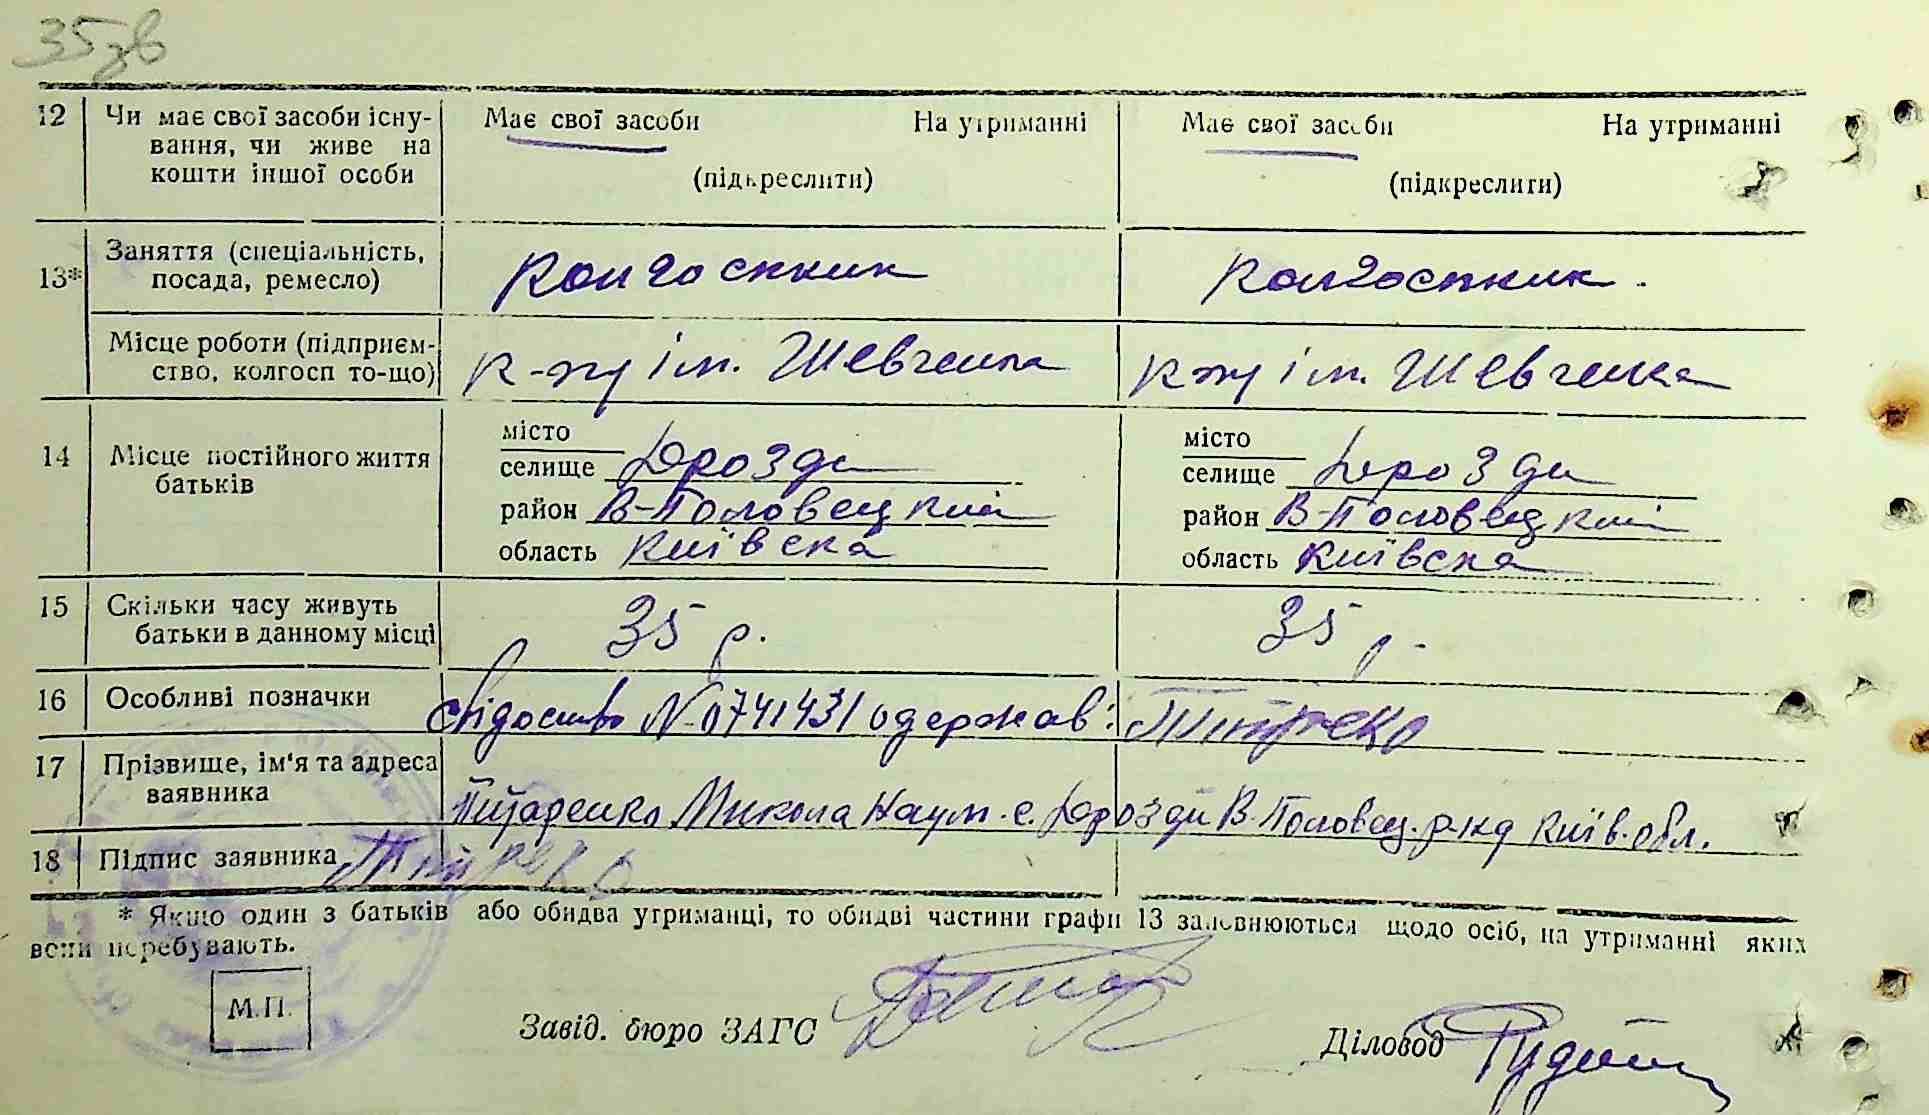 35зв
12 Чи має свої засоби існу- Має свої засоби На утриманні Має свої засоби На утриманні
вання, чи живе на
кошти іншої особи (підкреслити) (підкреслити)
13* Заняття (спеціальність, Колгоспник Колгоспник.
посада, ремесло)
Місце роботи (підприєм- к-пу ім. Шевченка к-пу ім. Шевченка
ство, колгосп то-що)
14 Місце постійного життя місто місто
батьків селище Дрозди селище Дрозди
район В-Половецкий район В-Половецкий
область Київска область Київска
15 Скільки часу живуть 35 р. 35 р.
батьки в данному місці
16 Особливі позначки свідоцтво N-0741431 одержав:
17 Прізвище, ім'я та адреса
заявника Микола Наум. с. Дрозди В. Половец. р-ну Київ. обл.
18 Підпис заявника
* Якщо один з батьків або обидва утриманці, то обидві частини графи 13 заповнюються щодо осіб, на утриманні яких
вони перебувають.
М.П.
Завід. бюро ЗАГС Діловод